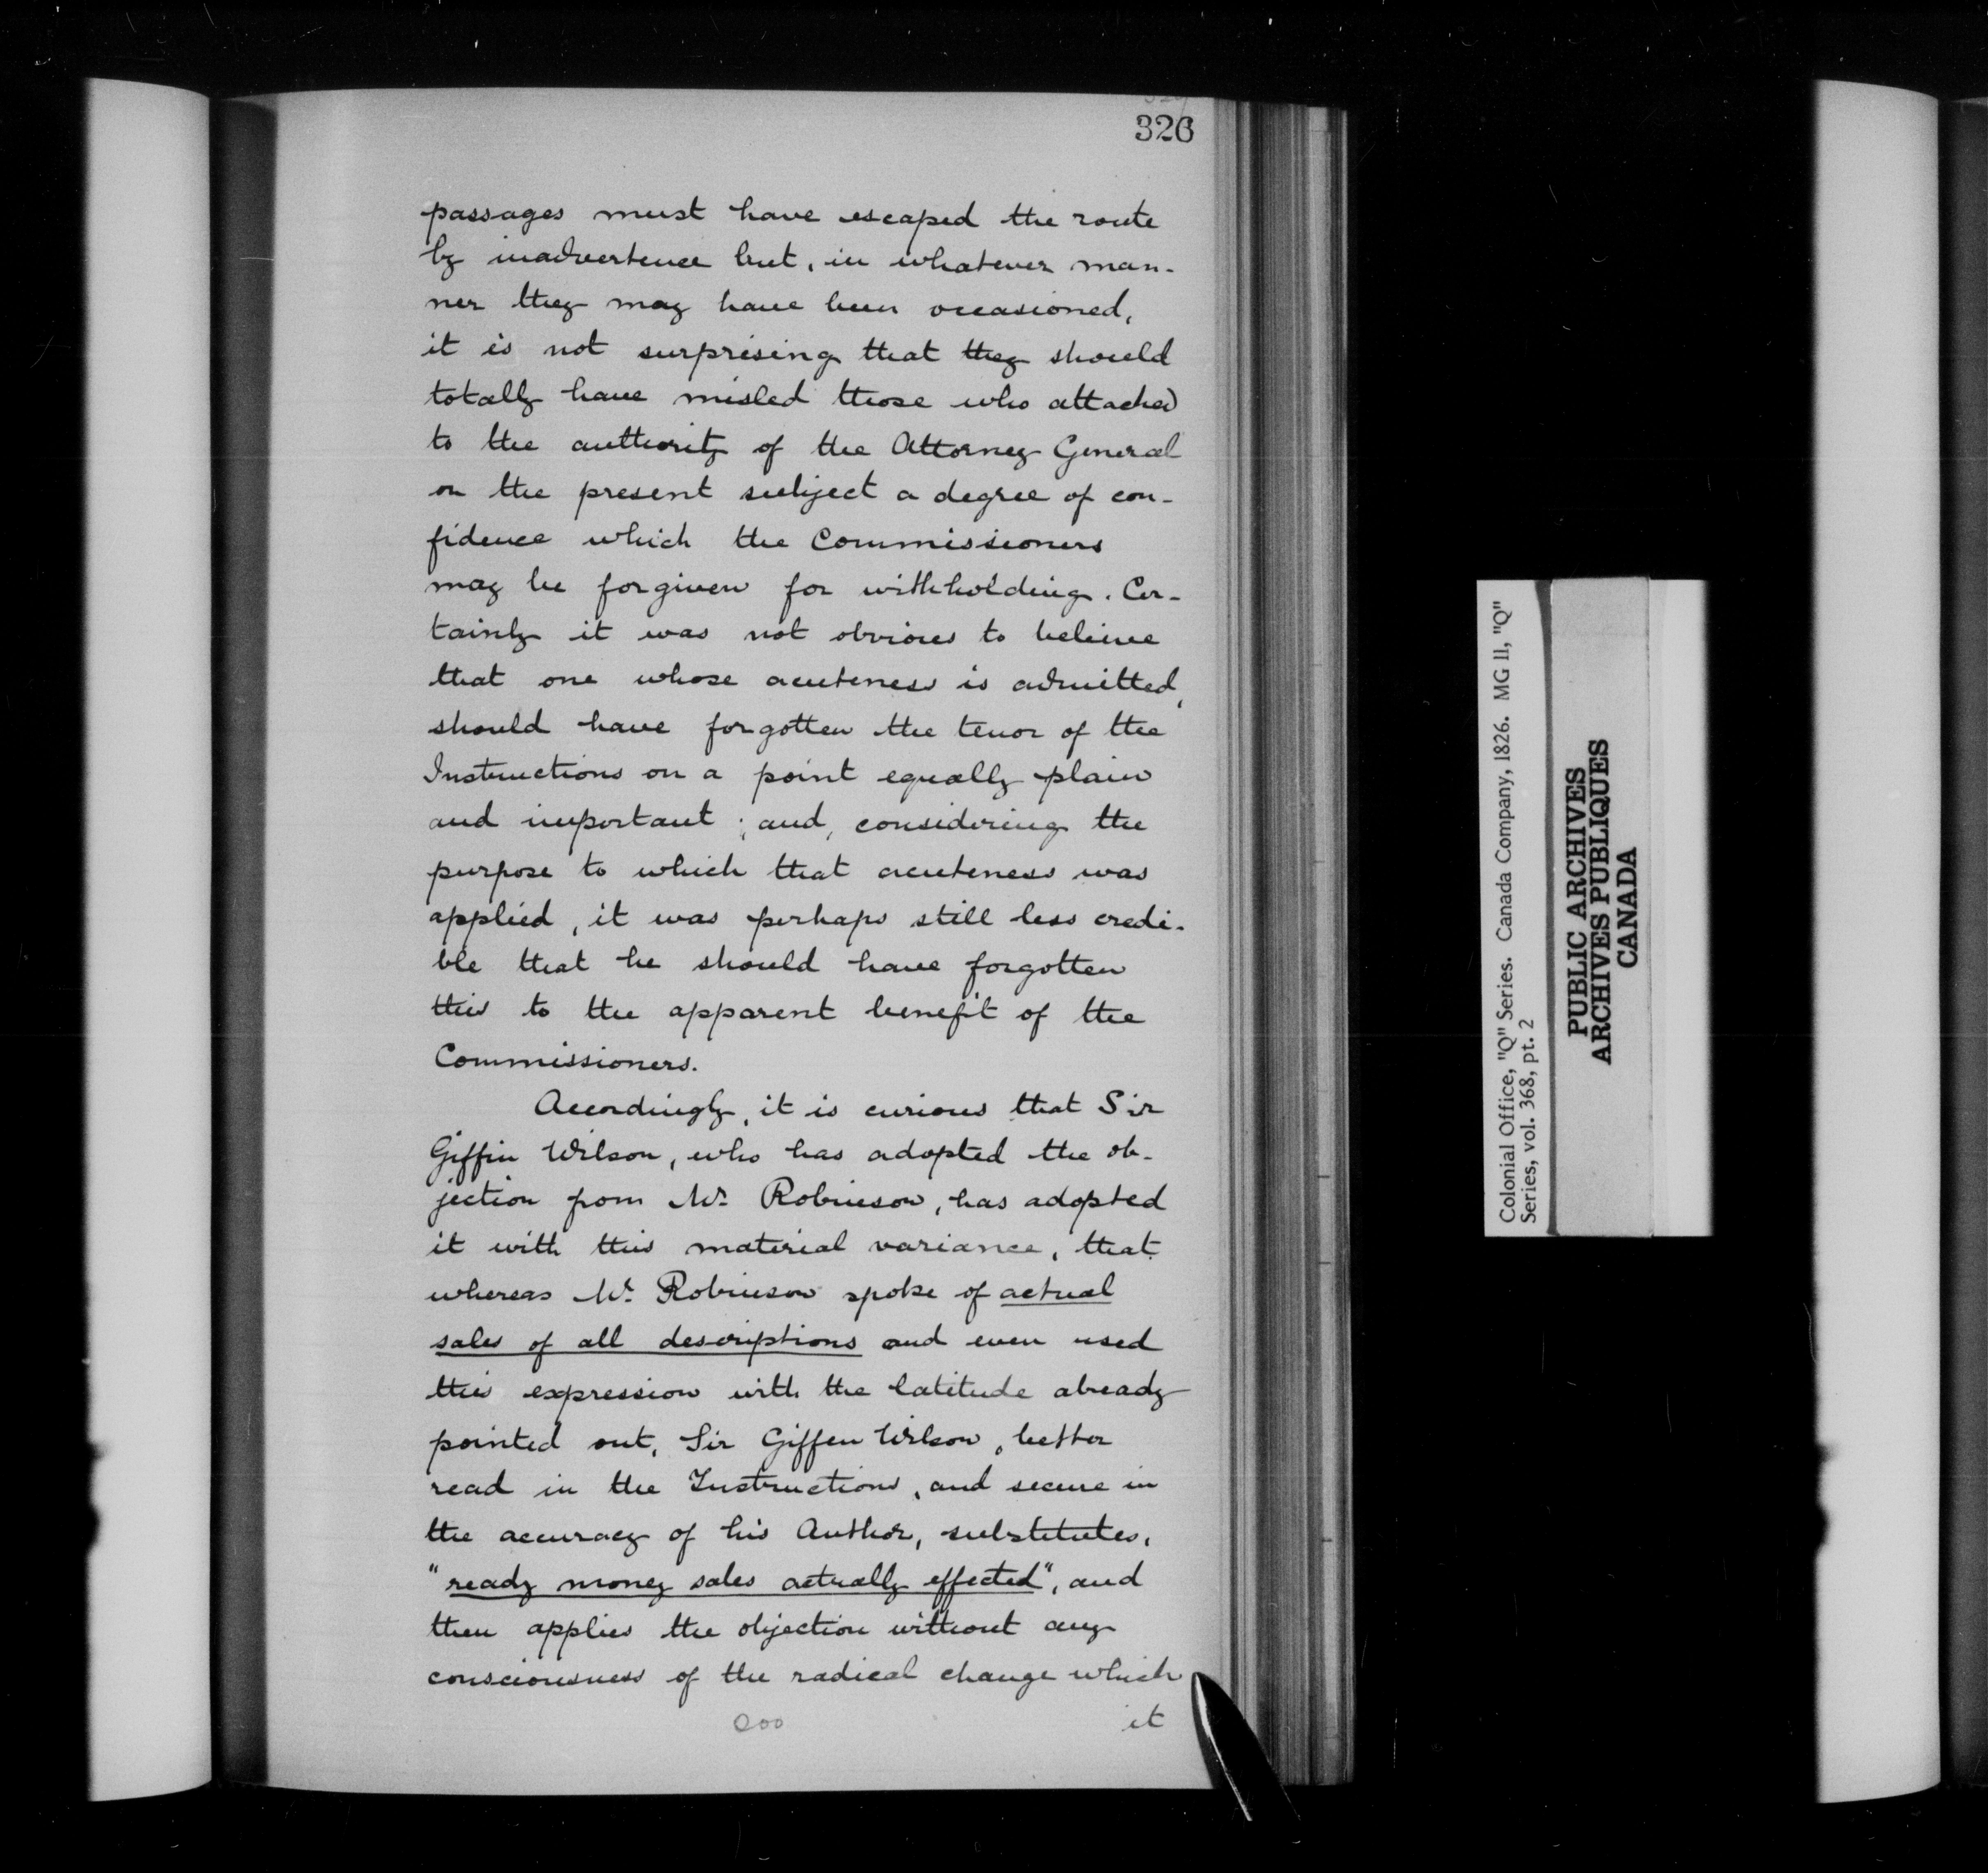 326
passages must have escaped the route
by inadvertence but, in whatever man-
ner they may have been occasioned,
it is not surprising that they should
totally have misled those who attached
to the authority of the Attorney General
on the present subject a degree of con-
fidence which the Commissioners
may be forgiven for withholding. Cer-
tainly it was not obvious to believe
that one whose acuteness is admitted,
should have forgotten the tenor of the
Instructions on a point equally plain
and important; and, considering the
purpose to which that acuteness was
applied, it was perhaps still less credi-
ble that he should have forgotten
this to the apparent benefit of the
Commissioners.
Accordingly, it is curious that Sir
Giffin Wilson, who has adopted the ob-
jection from Mr. Robinson, has adopted
it with this material variance, that
whereas Mr. Robinson spoke of actual
sales of all descriptions and even used
this expression with the latitude already
pointed out, Sir Giffen Wilson, better
read in the Instructions, and secure in
the accuracy of his Author, substitutes,
"ready money sales actually effected", and
then applies the objection without any
consciousness of the radical change which
it
Colonial Office, "Q" Series. Canada Company, 1826. MG 11, "Q"
Series, vol. 368, pt. 2
PUBLIC ARCHIVES
ARCHIVES PUBLIQUES
CANADA